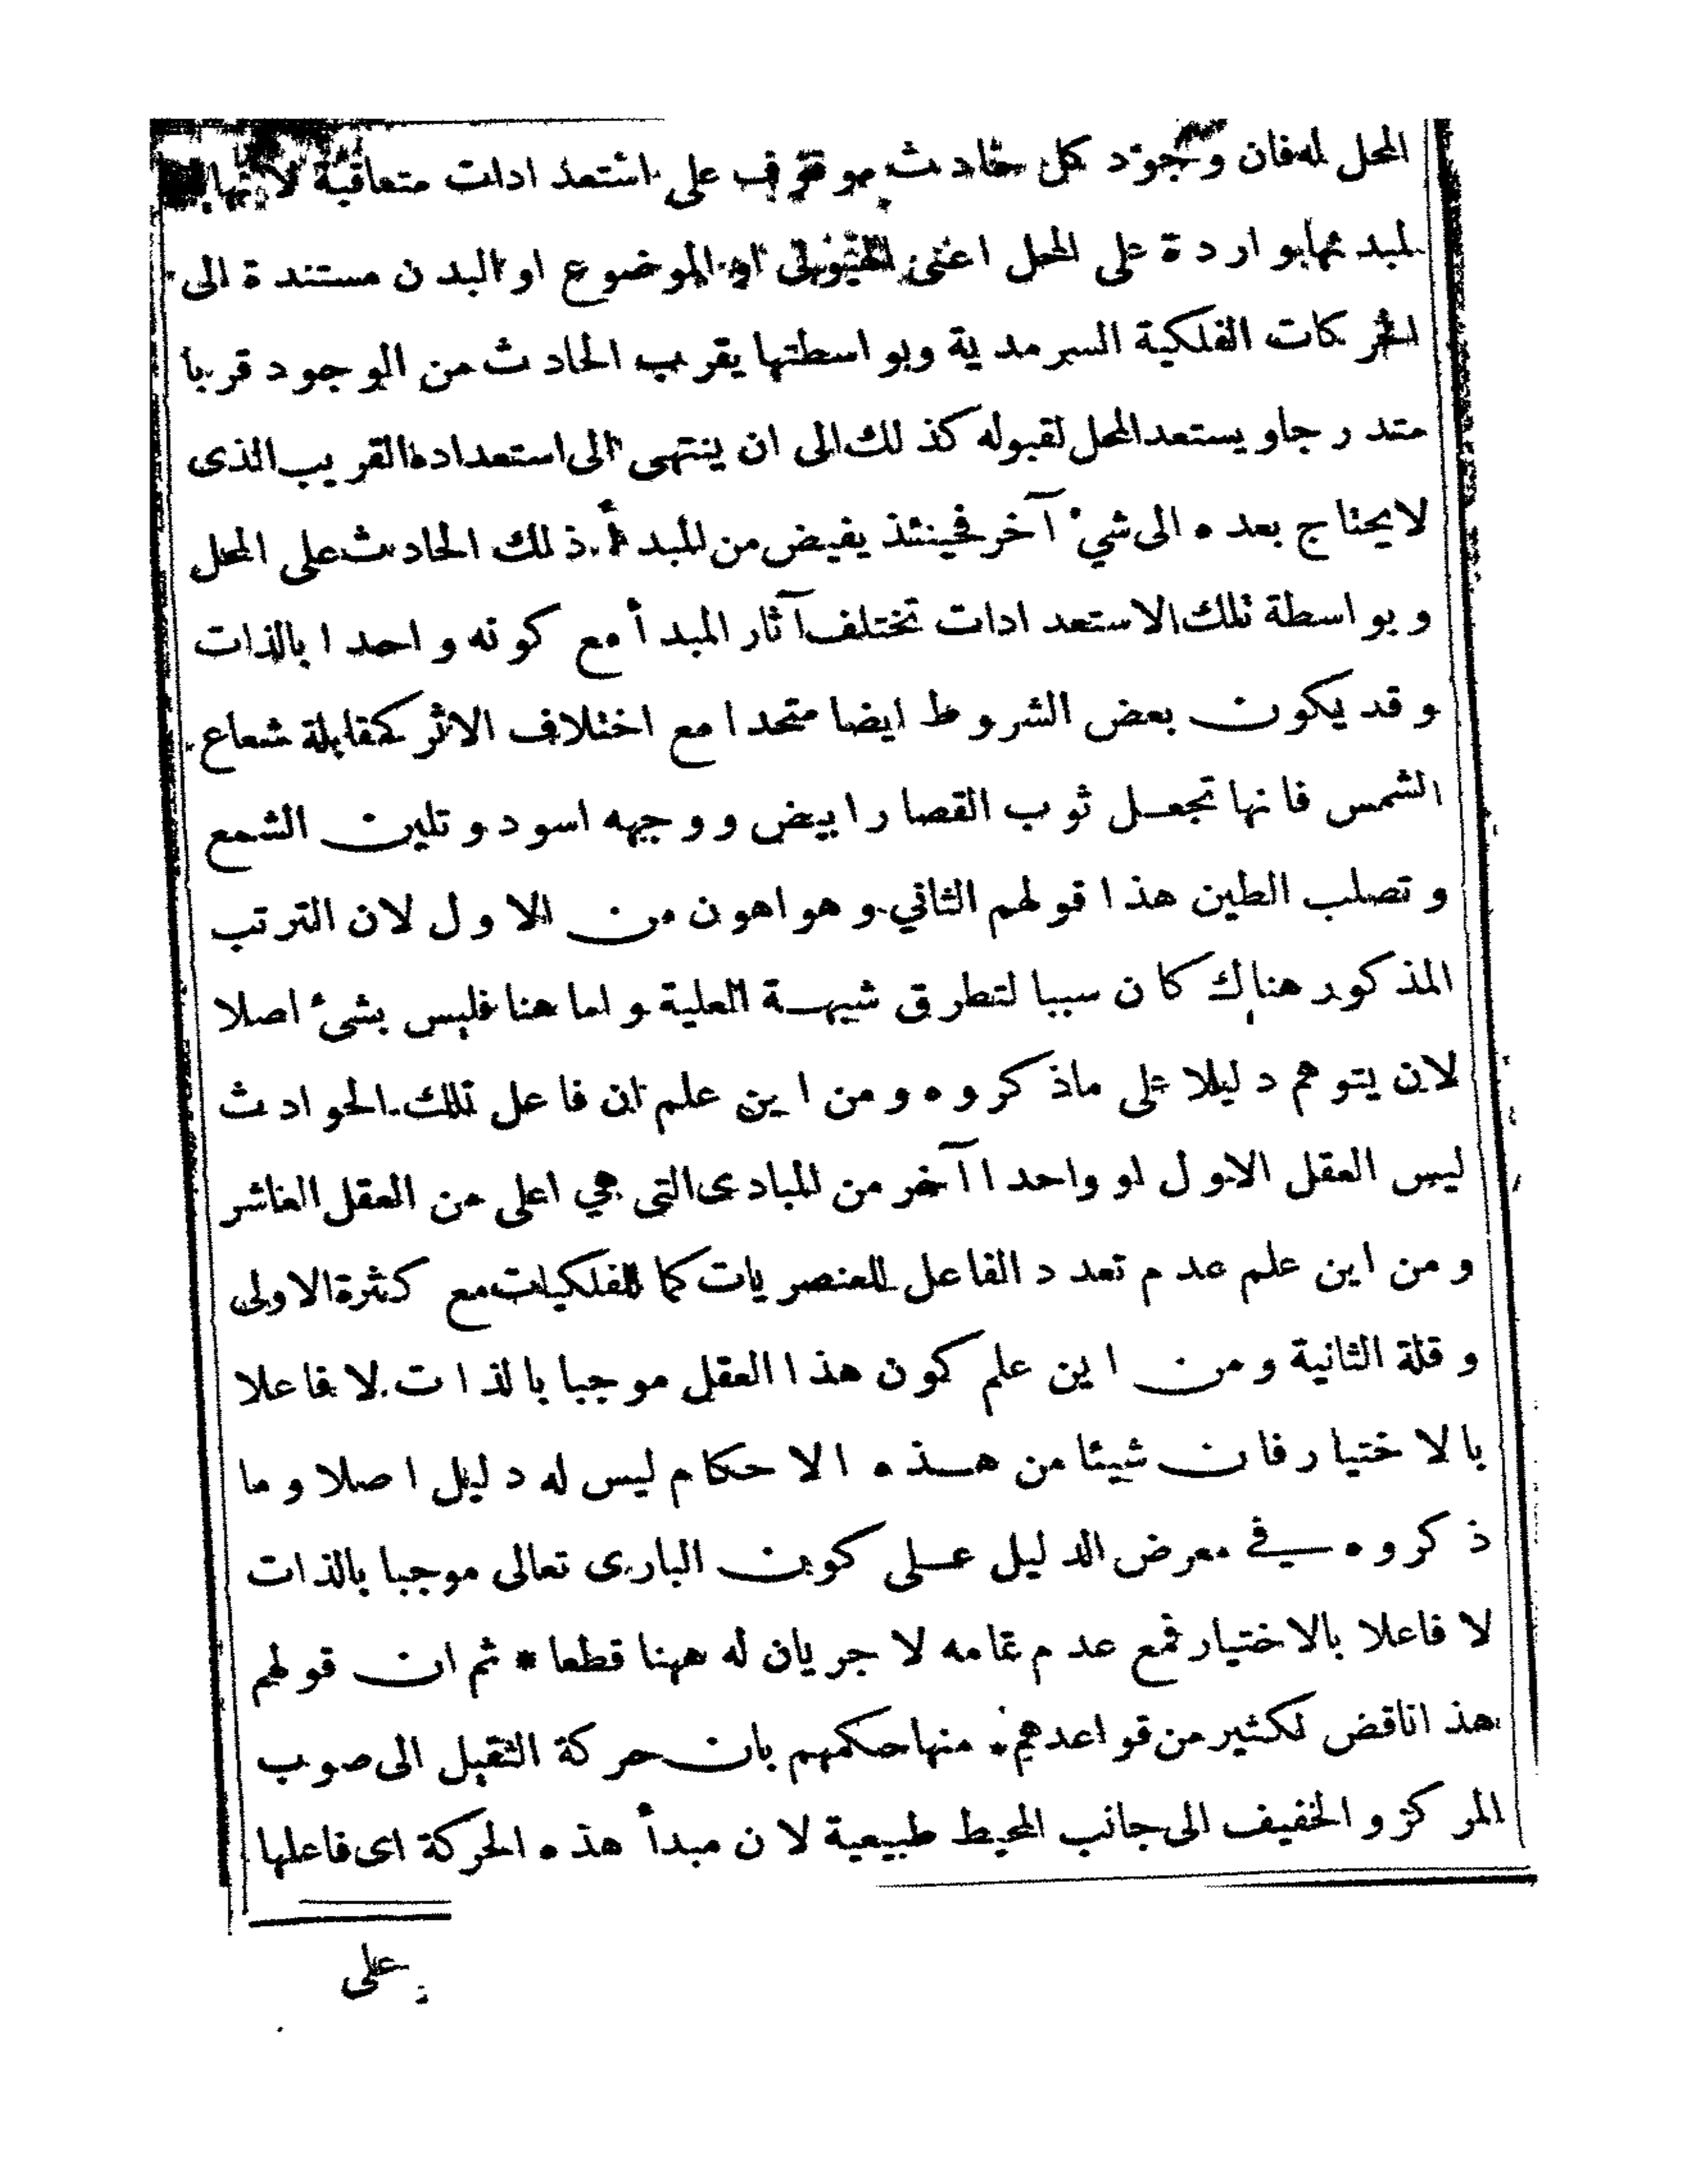 المحل له فان وجود كل حادث موقوف على استعدادات متعاقبة لا نهاية
لمبدئها بواردة على المحل اعنى الهيولى او الموضوع او البدن مستندة الى
الحركات الفلكية السرمدية وبواسطتها يقرب الحادث من الوجود قربا
متدرجا ويستعد المحل لقبوله كذلك الى ان ينتهى الى استعداده القريب الذى
لا يحتاج بعده الى شيء آخر فحينئذ يفيض من المبدأ ذلك الحادث على المحل
وبواسطة تلك الاستعدادات تختلف آثار المبدأ مع كونه واحدا بالذات
وقد يكون بعض الشروط ايضا متحدا مع اختلاف الاثر كمقابلة شعاع
الشمس فانها تجعل ثوب القصار ابيض ووجهه اسود وتلين الشمع
وتصلب الطين هذا قولهم الثاني وهو اهون من الاول لان الترتب
المذكور هناك كان سببا لتطرق شبهة العلية واما هنا فليس بشيء اصلا
لان يتوهم دليلا على ماذكروه ومن اين علم ان فاعل تلك الحوادث
ليس العقل الاول او واحدا آخر من المبادى التى هي اعلى من العقل العاشر
ومن اين علم عدم تعدد الفاعل للعنصريات كما للفلكيات مع كثرة الاولى
وقلة الثانية ومن اين علم كون هذا العقل موجبا بالذات لا فاعلا
بالاختيار فان شيئا من هذه الاحكام ليس له دليل اصلا وما
ذكروه في معرض الدليل على كون البارى تعالى موجبا بالذات
لا فاعلا بالاختيار فمع عدم تمامه لا جريان له ههنا قطعا * ثم ان قولهم
هذا ناقض لكثير من قواعدهم * منها حكمهم بان حركة الثقيل الى صوب
المركز والخفيف الى جانب المحيط طبيعية لان مبدأ هذه الحركة اى فاعلها
على